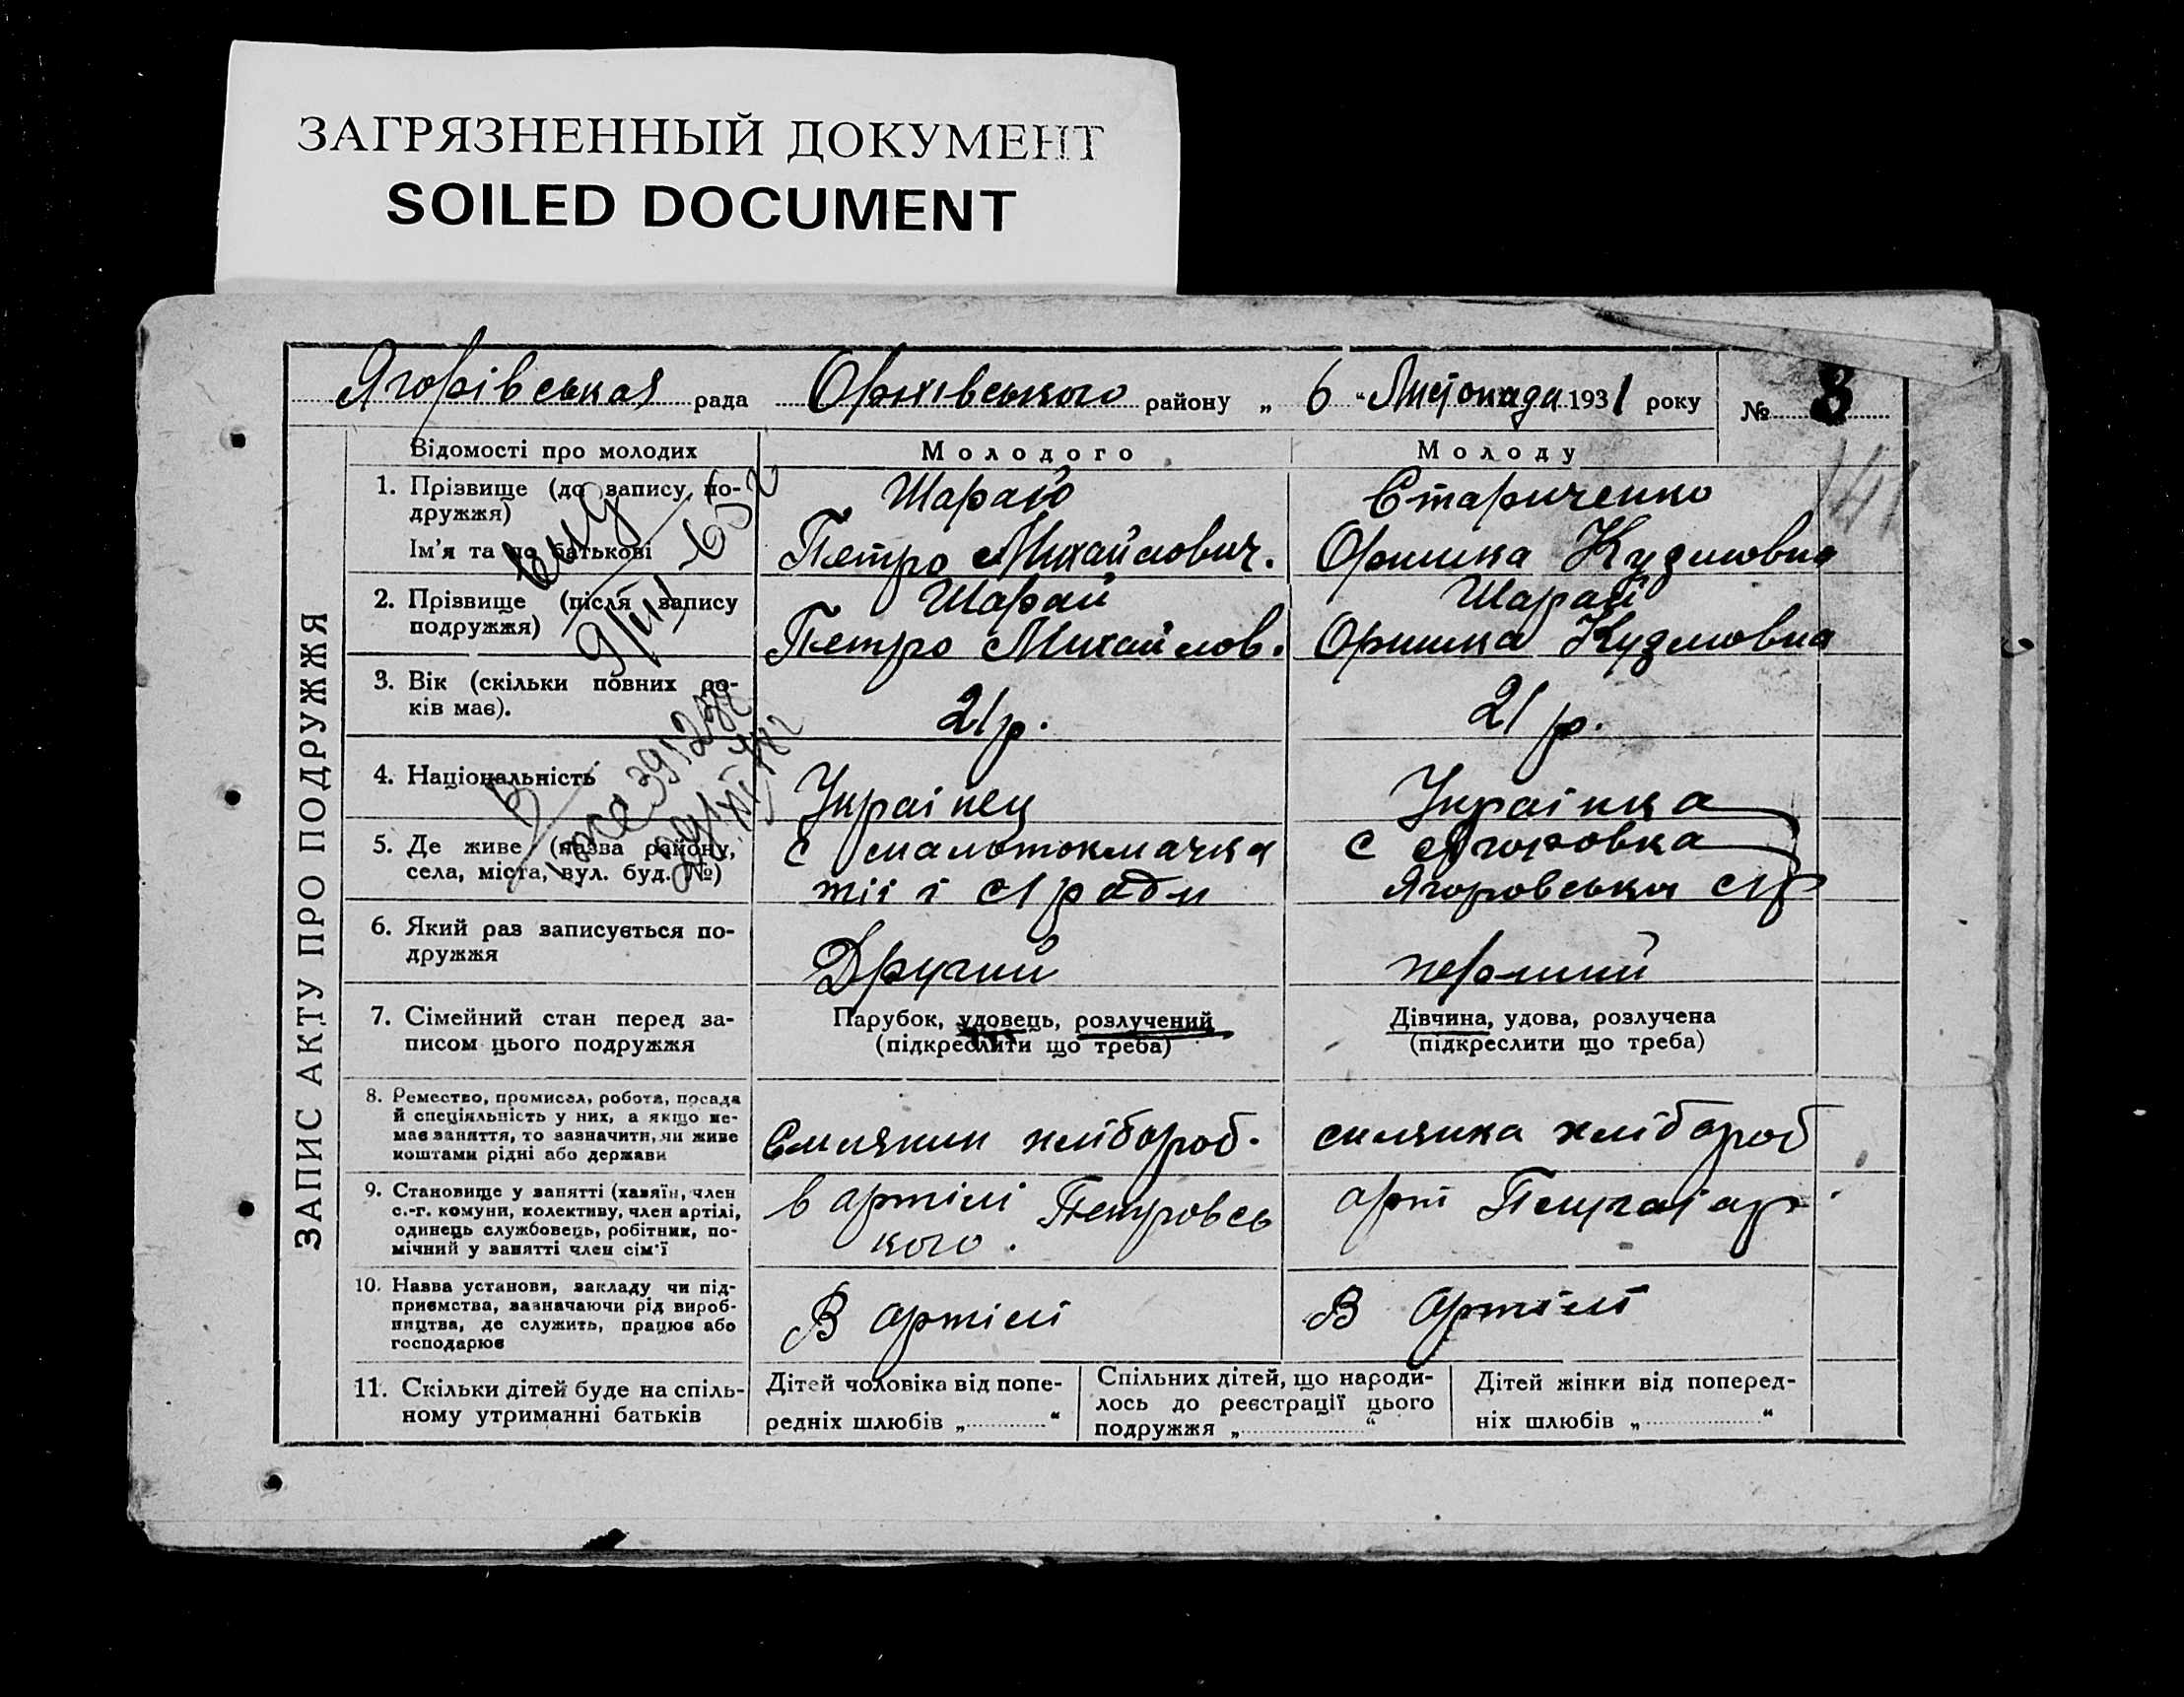 ЗАГРЯЗНЕННЫЙ ДОКУМЕНТ
SOILED DOCUMENT
Ягорівськая рада Оріхівського району „ 6 “ Листопада 1931 року № 8
ЗАПИС АКТУ ПРО ПОДРУЖЖЯ
Відомості про молодих Молодого Молоду
1. Прізвище (до запису по-
дружжя)
Шарай Стариченко
Ім'я та по батькові Петро Михайлович. Оришка Кузмовна
2. Прізвище (після запису
подружжя)
Шарай Шарай
Петро Михайлов. Оришка Кузмовна
3. Вік (скільки повних ро-
ків має).
21 р. 21 р.
4. Національність Українец Українка
5. Де живе (назва району,
села, міста, вул. буд. №)
с малотокмачка с Ягоровка
тії і с/ради Ягоровська с/р
6. Який раз записується по-
дружжя
Другий перший
7. Сімейний стан перед за-
писом цього подружжя
Парубок, удовець, розлучений
(підкреслити що треба)
Дівчина, удова, розлучена
(підкреслити що треба)
8. Ремество, промисел, робота, посада
й спеціяльність у них, а якщо не-
має заняття, то зазначити, чи живе
коштами рідні або держави
Силянин хлібороб. силянка хлібороб
9. Становище у занятті (хазяїн, член
с.-г. комуни, колективу, член артілі,
одинець службовець, робітник, по-
мічний у занятті член сім'ї
в артілі Петровсь
кого.
арт
10. Назва установи, закладу чи під-
приємства, зазначаючи рід вироб-
ництва, де служить, працює або
господарює
В артілі В артілі
11. Скільки дітей буде на спіль-
ному утриманні батьків
Дітей чоловіка від попе-
редніх шлюбів „ “
Спільних дітей, що народи-
лось до реєстрації цього
подружжя „ “
Дітей жінки від поперед-
ніх шлюбів „ “
141